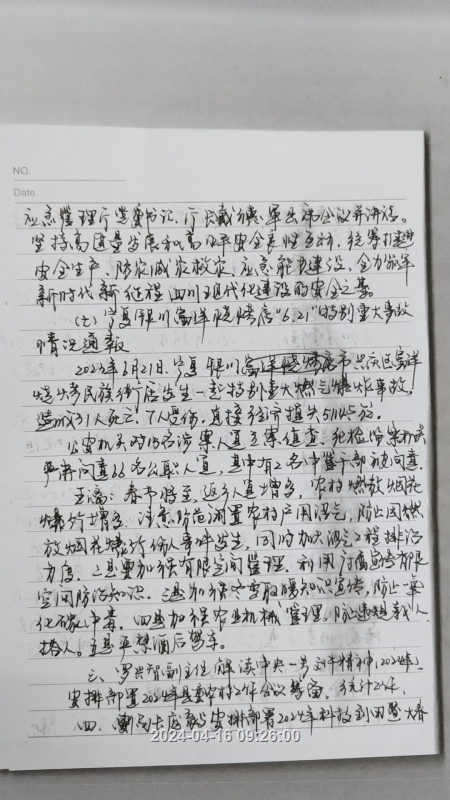 NO.
Date.
应急管理厅党委书记、厅长戴德军出席会议并讲话。
坚持高质量发展和高水平安全良性互动，统筹打建
安全生产、防灾减灾救灾、应急能力建设，全力筑牢
新时代新征程四川现代化建设的安全之基。
(七)宁夏银川富洋烧烤店"6.21"特别重大事故
情况通报
2023年6月21日，宁夏银川市兴庆区富洋
烧烤民族街店发生一起特别重大燃气爆炸事故，
造成31人死亡、7人受伤，直接经济损失5114.5万。
公安机关对15名涉案人员立案侦查，纪检监察机关
严肃问责 名公职人员，其中有2名中管干部被问责。
五需：春节将至，返乡人员增多，农村燃放烟花
爆竹增多，注意防范闲置农村户用沼气，防止因燃
放烟花爆竹伤人事件发生，同时加大沼气工程排治
力度。二是要加强有限空间管理，利用 宣传有限
空间防治知识。三是加强冬季取暖知识宣传，防止一氧
化碳中毒。四是加强农业机械管理，防止违规载人、
搭人。五是严禁酒后驾车。
三、罗共智副主任解读中央一号文件精神，2024年
安排部署2024年县 农村工作会议筹备，
四、 安排部署2024年科技 大春
2024-04-16 09:26:00